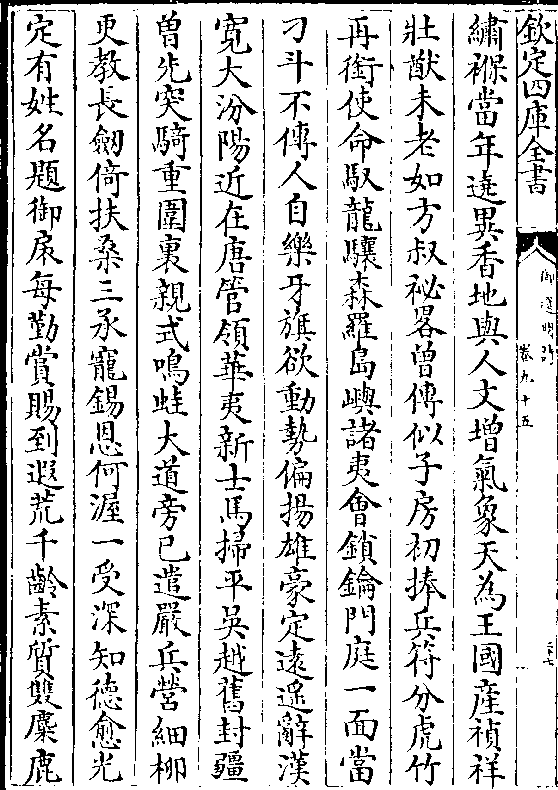 欽定四庫全書
御選明詩
卷九十五
繡褓當年遶異香地與人文增氣象天為王國產禎祥
壯猷未老如方叔祕畧曾傳似子房初捧兵符分虎竹
再銜使命馭龍驤森羅島嶼諸夷會鎖鑰門庭一面當
刁斗不傳人自樂牙旗欲動勢偏揚雄豪定遠遥辭漢
寛大汾陽近在唐管領華夷新士馬掃平吳越舊封疆
曽先突騎重圍裏親式鳴蛙大道旁已遣嚴兵營細柳
更教長劒倚扶桑三承寵錫恩何渥一受深知德愈光
定有姓名題御扆每勤賞賜到遐荒千齡素質雙麋鹿